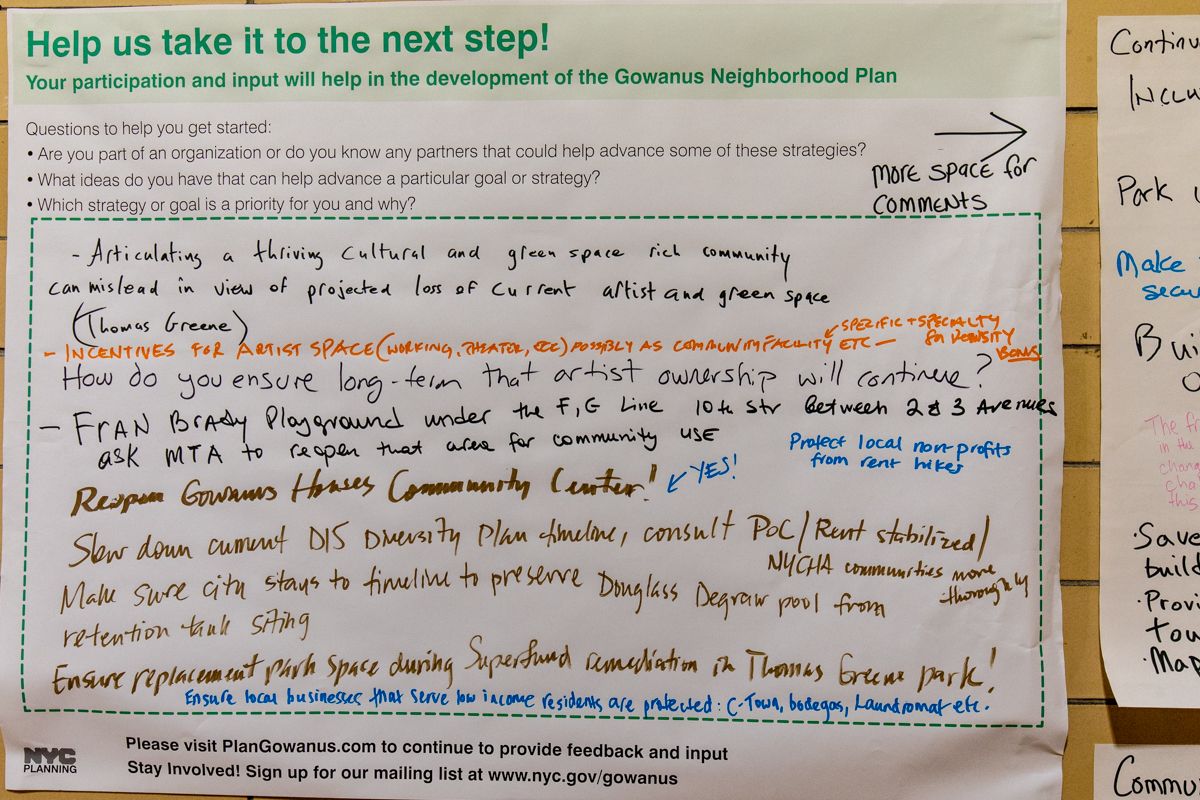 Help us take it to the next step!
Your participation and input will help in the development of the Gowanus Neighborhood Plan
Questions to help you get started:
• Are you part of an organization or do you know any partners that could help advance some of these strategies?
• What ideas do you have that can help advance a particular goal or strategy?
• Which strategy or goal is a priority for you and why?
MORE SPACE for
COMMENTS
- Articulating a thriving cultural and green space rich community
can mislead in view of projected loss of current artist and green space
(Thomas Greene)
SPECIFIC + SPECIALTY
for DENSITY
BONUS
- INCENTIVES FOR ARTIST SPACE (WORKING, THEATOR, ETC) POSSIBLY AS COMMUNITY FACILITY ETC —
How do you ensure long-term that artist ownership will continue?
- FRAN Brady Playground under the F, G Line 10th Str Between 2 & 3 Avenues
ask MTA to reopen that area for community USE
Protect local non-profits
from rent hikes
Reopen Gowanus Houses Community Center!
YES!
Slow down current D15 Diversity Plan timeline, consult PoC/Rent stabilized/
NYCHA communities more
thoroughly
Make sure city stays to timeline to preserve Douglass Degraw pool from
retention tank siting
Ensure replacement park space during Superfund remediation in Thomas Greene park!
Ensure local businesses that serve low income residents are protected: C-Town, bodegas, Laundromat etc.
NYC
PLANNING
Please visit PlanGowanus.com to continue to provide feedback and input
Stay Involved! Sign up for our mailing list at www.nyc.gov/gowanus
Park
Make
The
in the
this
·Save
build